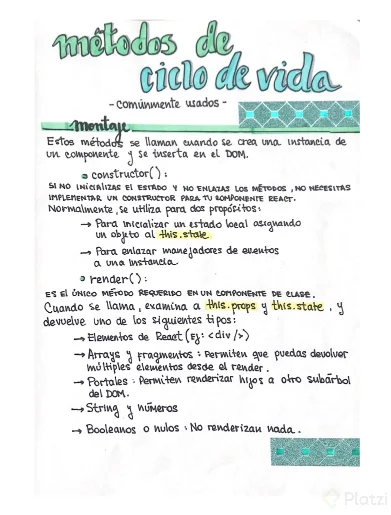 métodos de
ciclo de vida
- comúnmente usados -
montaje
Estos métodos se llaman cuando se crea una instancia de
un componente y se inserta en el DOM.
constructor():
SI NO INICIALIZAS EL ESTADO Y NO ENLAZAS LOS MÉTODOS, NO NECESITAS
IMPLEMENTAR UN CONSTRUCTOR PARA TU COMPONENTE REACT.
Normalmente, se utiliza para dos propósitos:
→ Para inicializar un estado local asignando
un objeto al this.state.
→ Para enlazar manejadores de eventos
a una instancia.
render():
ES EL ÚNICO MÉTODO REQUERIDO EN UN COMPONENTE DE CLASE.
Cuando se llama, examina a this.props y this.state, y
devuelve uno de los siguientes tipos:
→ Elementos de React (Ej: <div />)
→ Arrays y Fragmentos: Permiten que puedas devolver
múltiples elementos desde el render.
→ Portales: Permiten renderizar hijos a otro subárbol
del DOM.
→ String y números
→ Booleanos o nulos: No renderizan nada.
Platzi